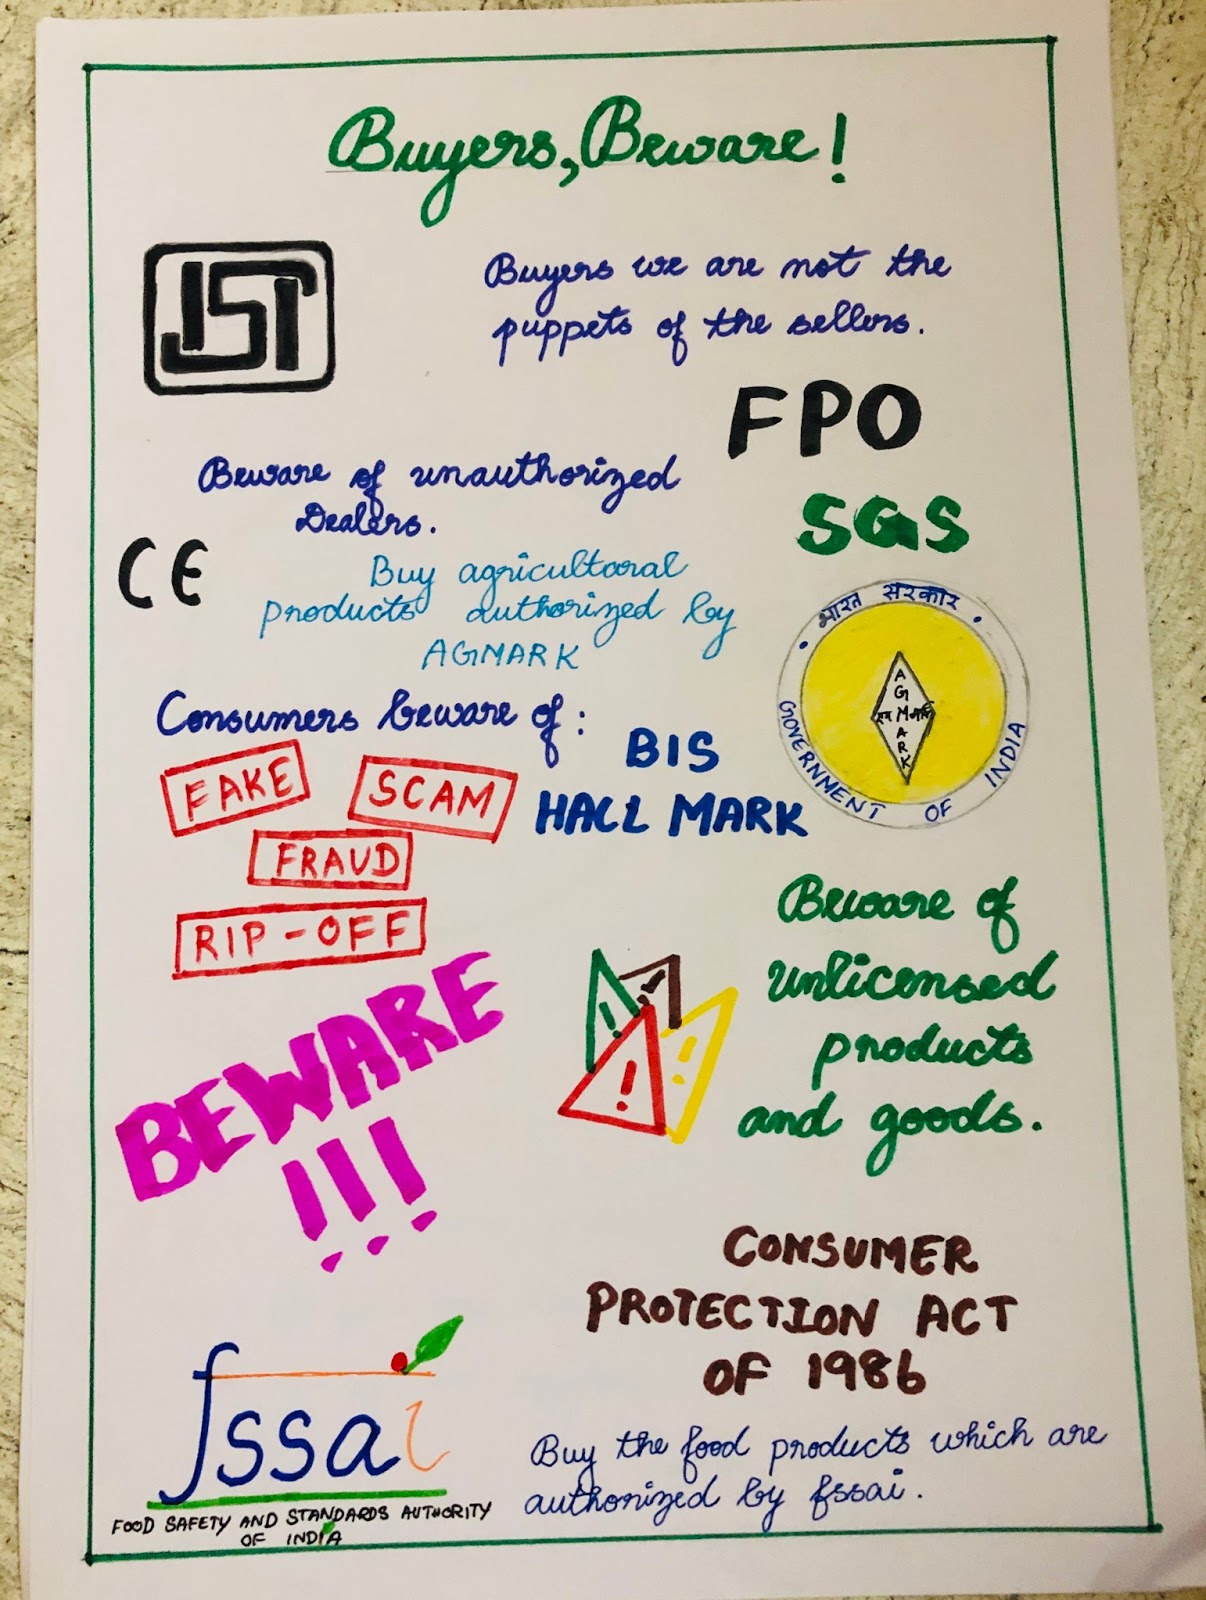 Buyers, Beware!
ISI
Buyers we are not the
puppets of the sellers.
FPO
Beware of unauthorized
Dealers.
SGS
CE
Buy agricultoral
products authorized by
AGMARK
भारत सरकार
AGMARK
GOVERNMENT OF INDIA
Consumers beware of:
FAKE
SCAM
FRAUD
RIP-OFF
BIS
HALL MARK
BEWARE
!!!
Beware of
unlicensed
products
and goods.
!
!
!
CONSUMER
PROTECTION ACT
OF 1986
fssai
FOOD SAFETY AND STANDARDS AUTHORITY
OF INDIA
Buy the food products which are
authorized by fssai.